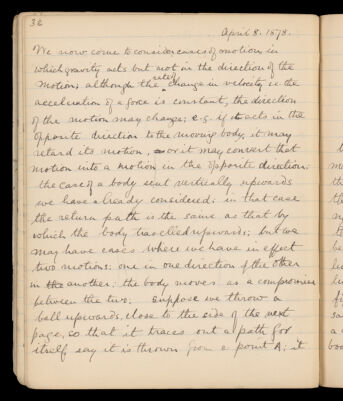 32
April 8. 1878.
We now come to consider cases of motion in
which gravity acts but not in the direction of the
motion; although the rate of change in velocity i.e the
acceleration of a force is constant, the direction
of the motion may change; e.g. if it acts in the
opposite direction to the moving body, it may
retard its motion, or it may convert that
motion into a motion in the opposite direction:
the case of a body sent vertically upwards
we have already considered: in that case
the return path is the same as that by
which the body travelled upwards; but we
may have cases where we have in effect
two motions: one in one direction & the other
in another: the body moves as a compromise
between the two: suppose we throw a
ball upwards, close to the side of the next
page, so that it traces out a path for
itself, say it is thrown from a point A; it